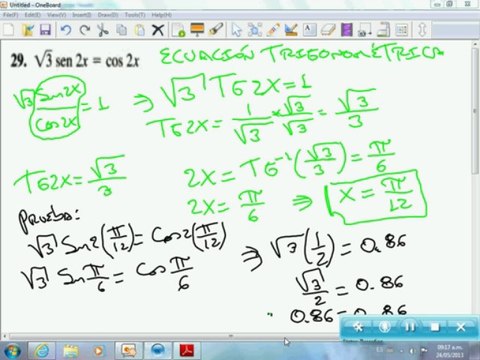 Untitled - OneBoard
File Edit View Insert Format Tools Help
29. √3 sen 2x = cos 2x
ECUACIÓN TRIGONOMÉTRICA
√3 Sen2x/Cos2x = 1 ⇒ √3 TG2X = 1
TG2X = 1/√3 * √3/√3 = √3/3
TG2X = √3/3
2X = TG⁻¹(√3/3) = π/6
2X = π/6 ⇒ X = π/12
Prueba:
√3 Sen2(π/12) = Cos2(π/12)
√3 Sen π/6 = Cos π/6
⇒ √3(1/2) = 0.86
√3/2 = 0.86
0.86 = 0.86
ES
09:17 a.m.
24/05/2013